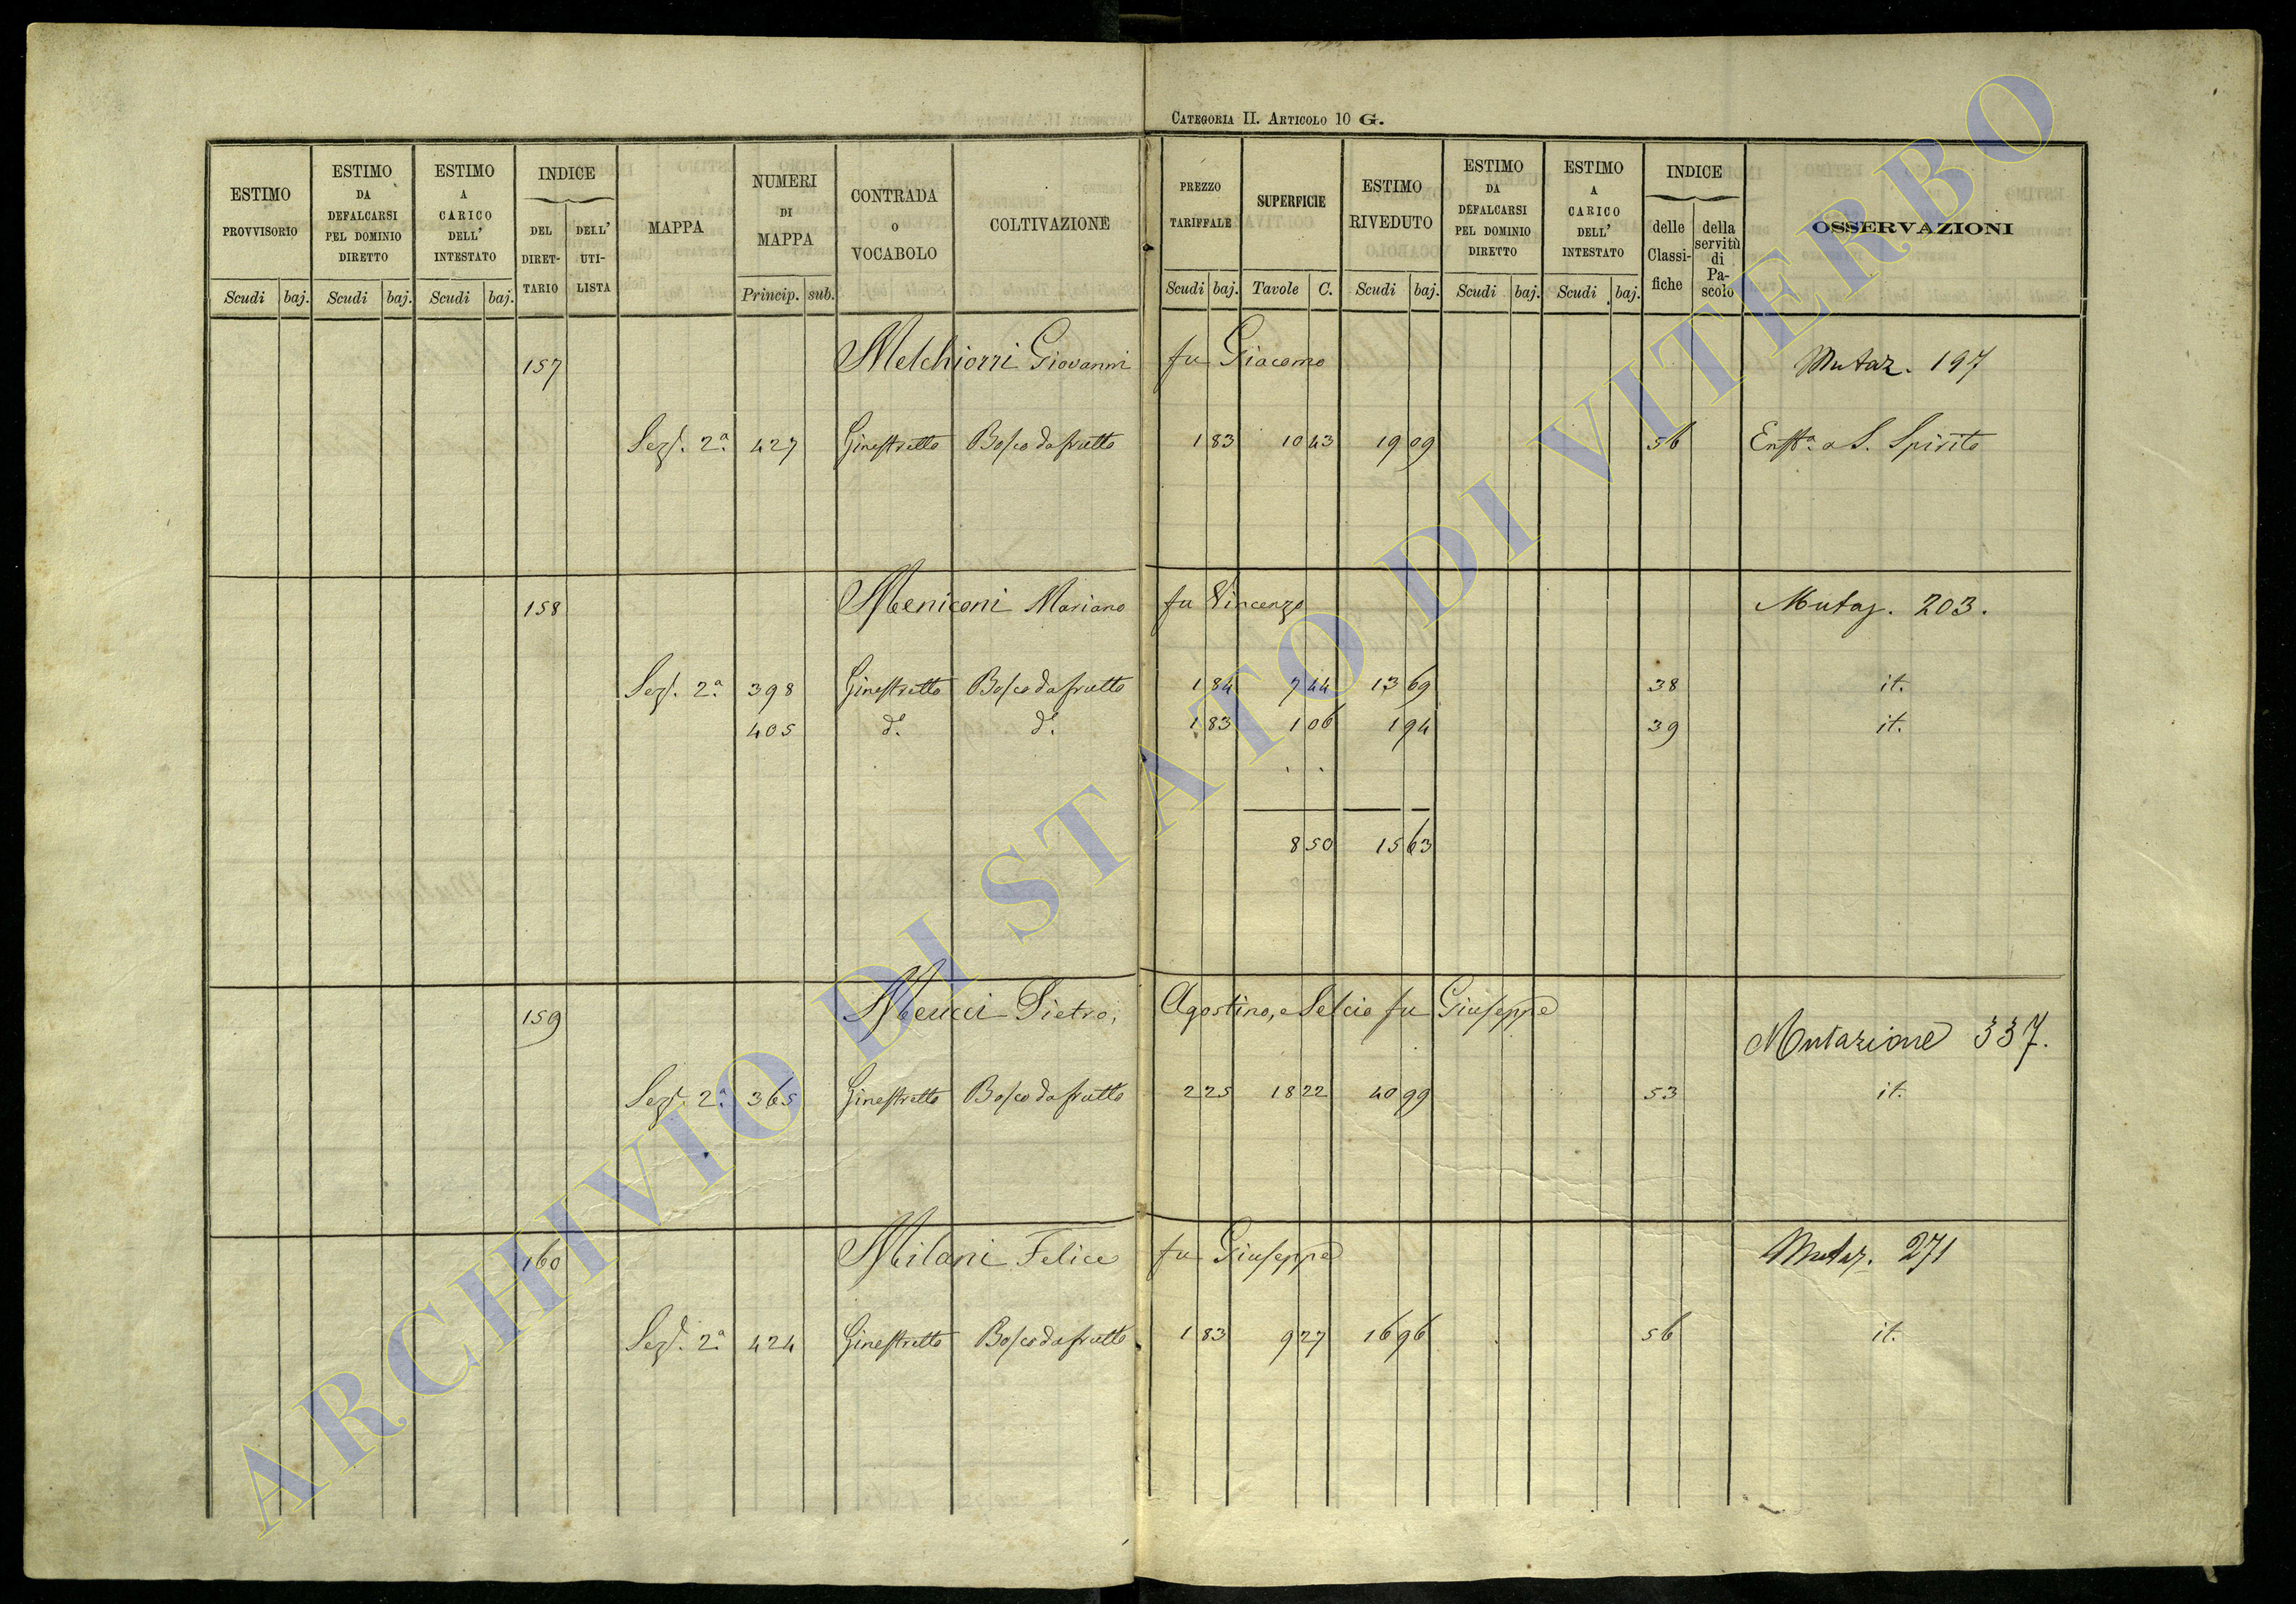 CATEGORIA II. ARTICOLO 10 G.
ESTIMO PROVVISORIO
ESTIMO DA DEFALCARSI PEL DOMINIO DIRETTO
ESTIMO A CARICO DELL' INTESTATO
INDICE
DEL DIRET-TARIO
DELL' UTI-LISTA
MAPPA
NUMERI DI MAPPA
CONTRADA O VOCABOLO
COLTIVAZIONE
PREZZO TARIFFALE
SUPERFICIE
ESTIMO RIVEDUTO
ESTIMO DA DEFALCARSI PEL DOMINIO DIRETTO
ESTIMO A CARICO DELL' INTESTATO
INDICE
delle Classi-fiche
della servitù di Pa-scolo
OSSERVAZIONI
Scudi baj. Scudi baj. Scudi baj. Princip. sub. Scudi baj. Tavole C. Scudi baj. Scudi baj. Scudi baj.
157 Melchiorri Giovanni fu Giacomo Mutaz. 197
Sez. 2ª 427 Ginestretto Bosco da frutto 1 83 10 43 19 09 56 Enfta. a S. Spirito
158 Meniconi Mariano fu Vincenzo Mutaz. 203.
Sez. 2ª 398 Ginestretto Bosco da frutto 1 84 7 44 13 69 38 it.
405 d.º d.º 1 83 1 06 1 94 39 it.
8 50 15 63
159 Meucci Pietro, Agostino, e fu Giuseppe Mutazione 337.
Sez. 2ª 365 Ginestretto Bosco da frutto 2 25 18 22 40 99 53 it.
160 Milani Felice fu Giuseppe Mutaz. 271
Sez. 2ª 424 Ginestretto Bosco da frutto 1 83 9 27 16 96 56 it.
ARCHIVIO DI STATO DI VITERBO